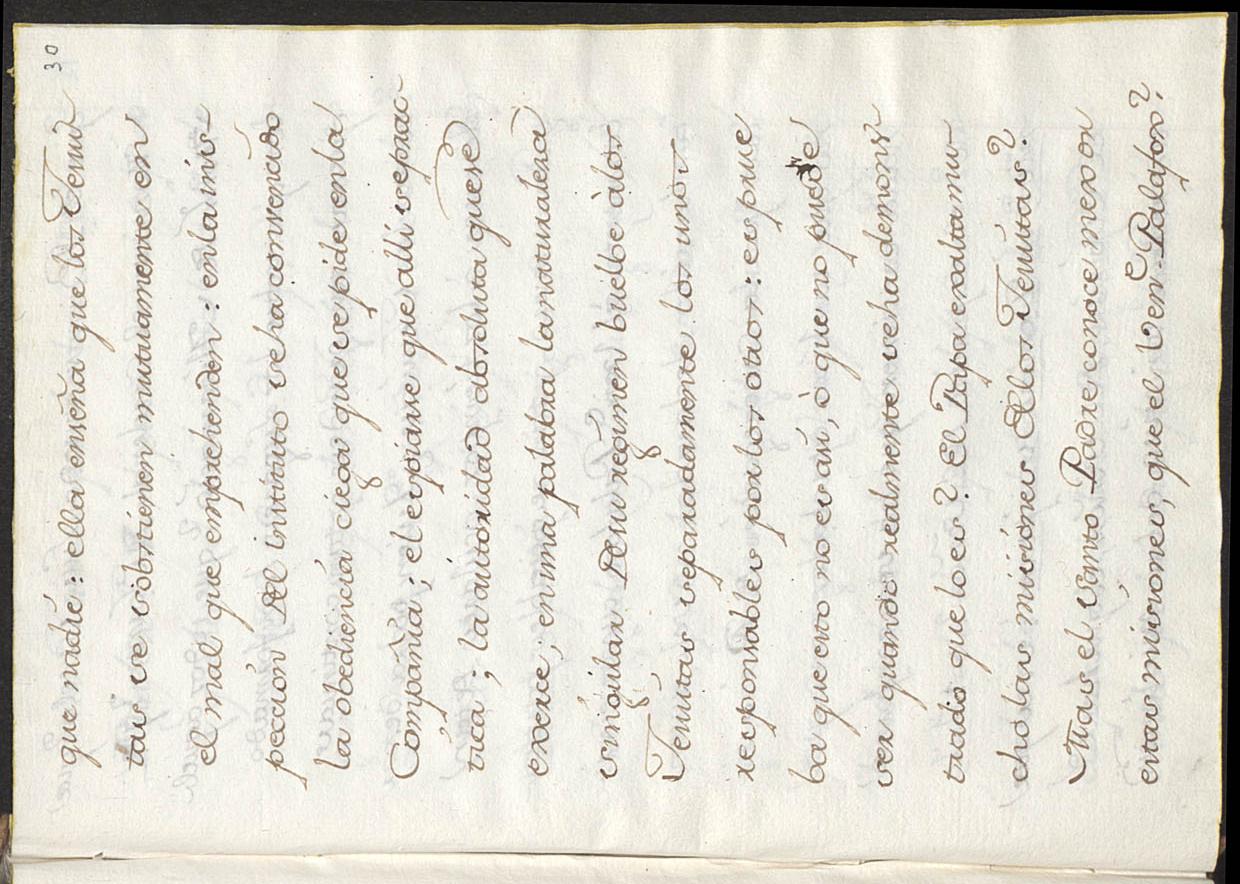 30
que nadie: ella enseña que los Jesui
tas se sobstienen mutuamente en
el mal que emprehenden: en la ins-
peccion del instituto se ha conservado
la obediencia ciega que se pide en la
Compañia; el espiarse que alli se prac-
tica; la autoridad absoluta que se
exerce; en una palabra la naturaleza
singular de su regimen buelbe à los
Jesuitas separadamente los unos
responsables por los otros: es prue
ba que esto no es asi, ò que no puede
ser quando realmente se ha demons-
trado que lo es? El Papa exalta mu
cho las misiones de los Jesuitas?
Mas el Santo Padre conoce mejor
estas misiones, que el Ven.e Palafox?